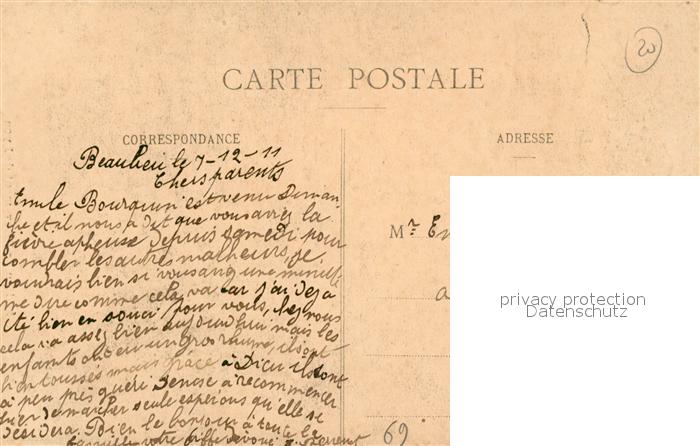 20
CARTE POSTALE
CORRESPONDANCE
ADRESSE
Beaulieu le 7-12-11
Chers parents
Emile Bourquin est venu diman-
che et il nous a dit que vous avez la
fièvre apheuse depuis samedi pour
combler les autres malheurs, je
voudrais bien si vous aviez une minute
me dire comme cela va car j'ai déja
été bien en souci pour vous, chez nous
cela va assez bien aujourd'hui mais les
enfants ont eu un gros rhume, ils ont
bien toussés mais grâce à Dieu ils sont
à peu près guéri Denise a recommencer
hier de marcher seule esperons qu'elle se
decidera. Bien le bonjour à toute la
votre
Mr Em
a
69
privacy protection
Datenschutz